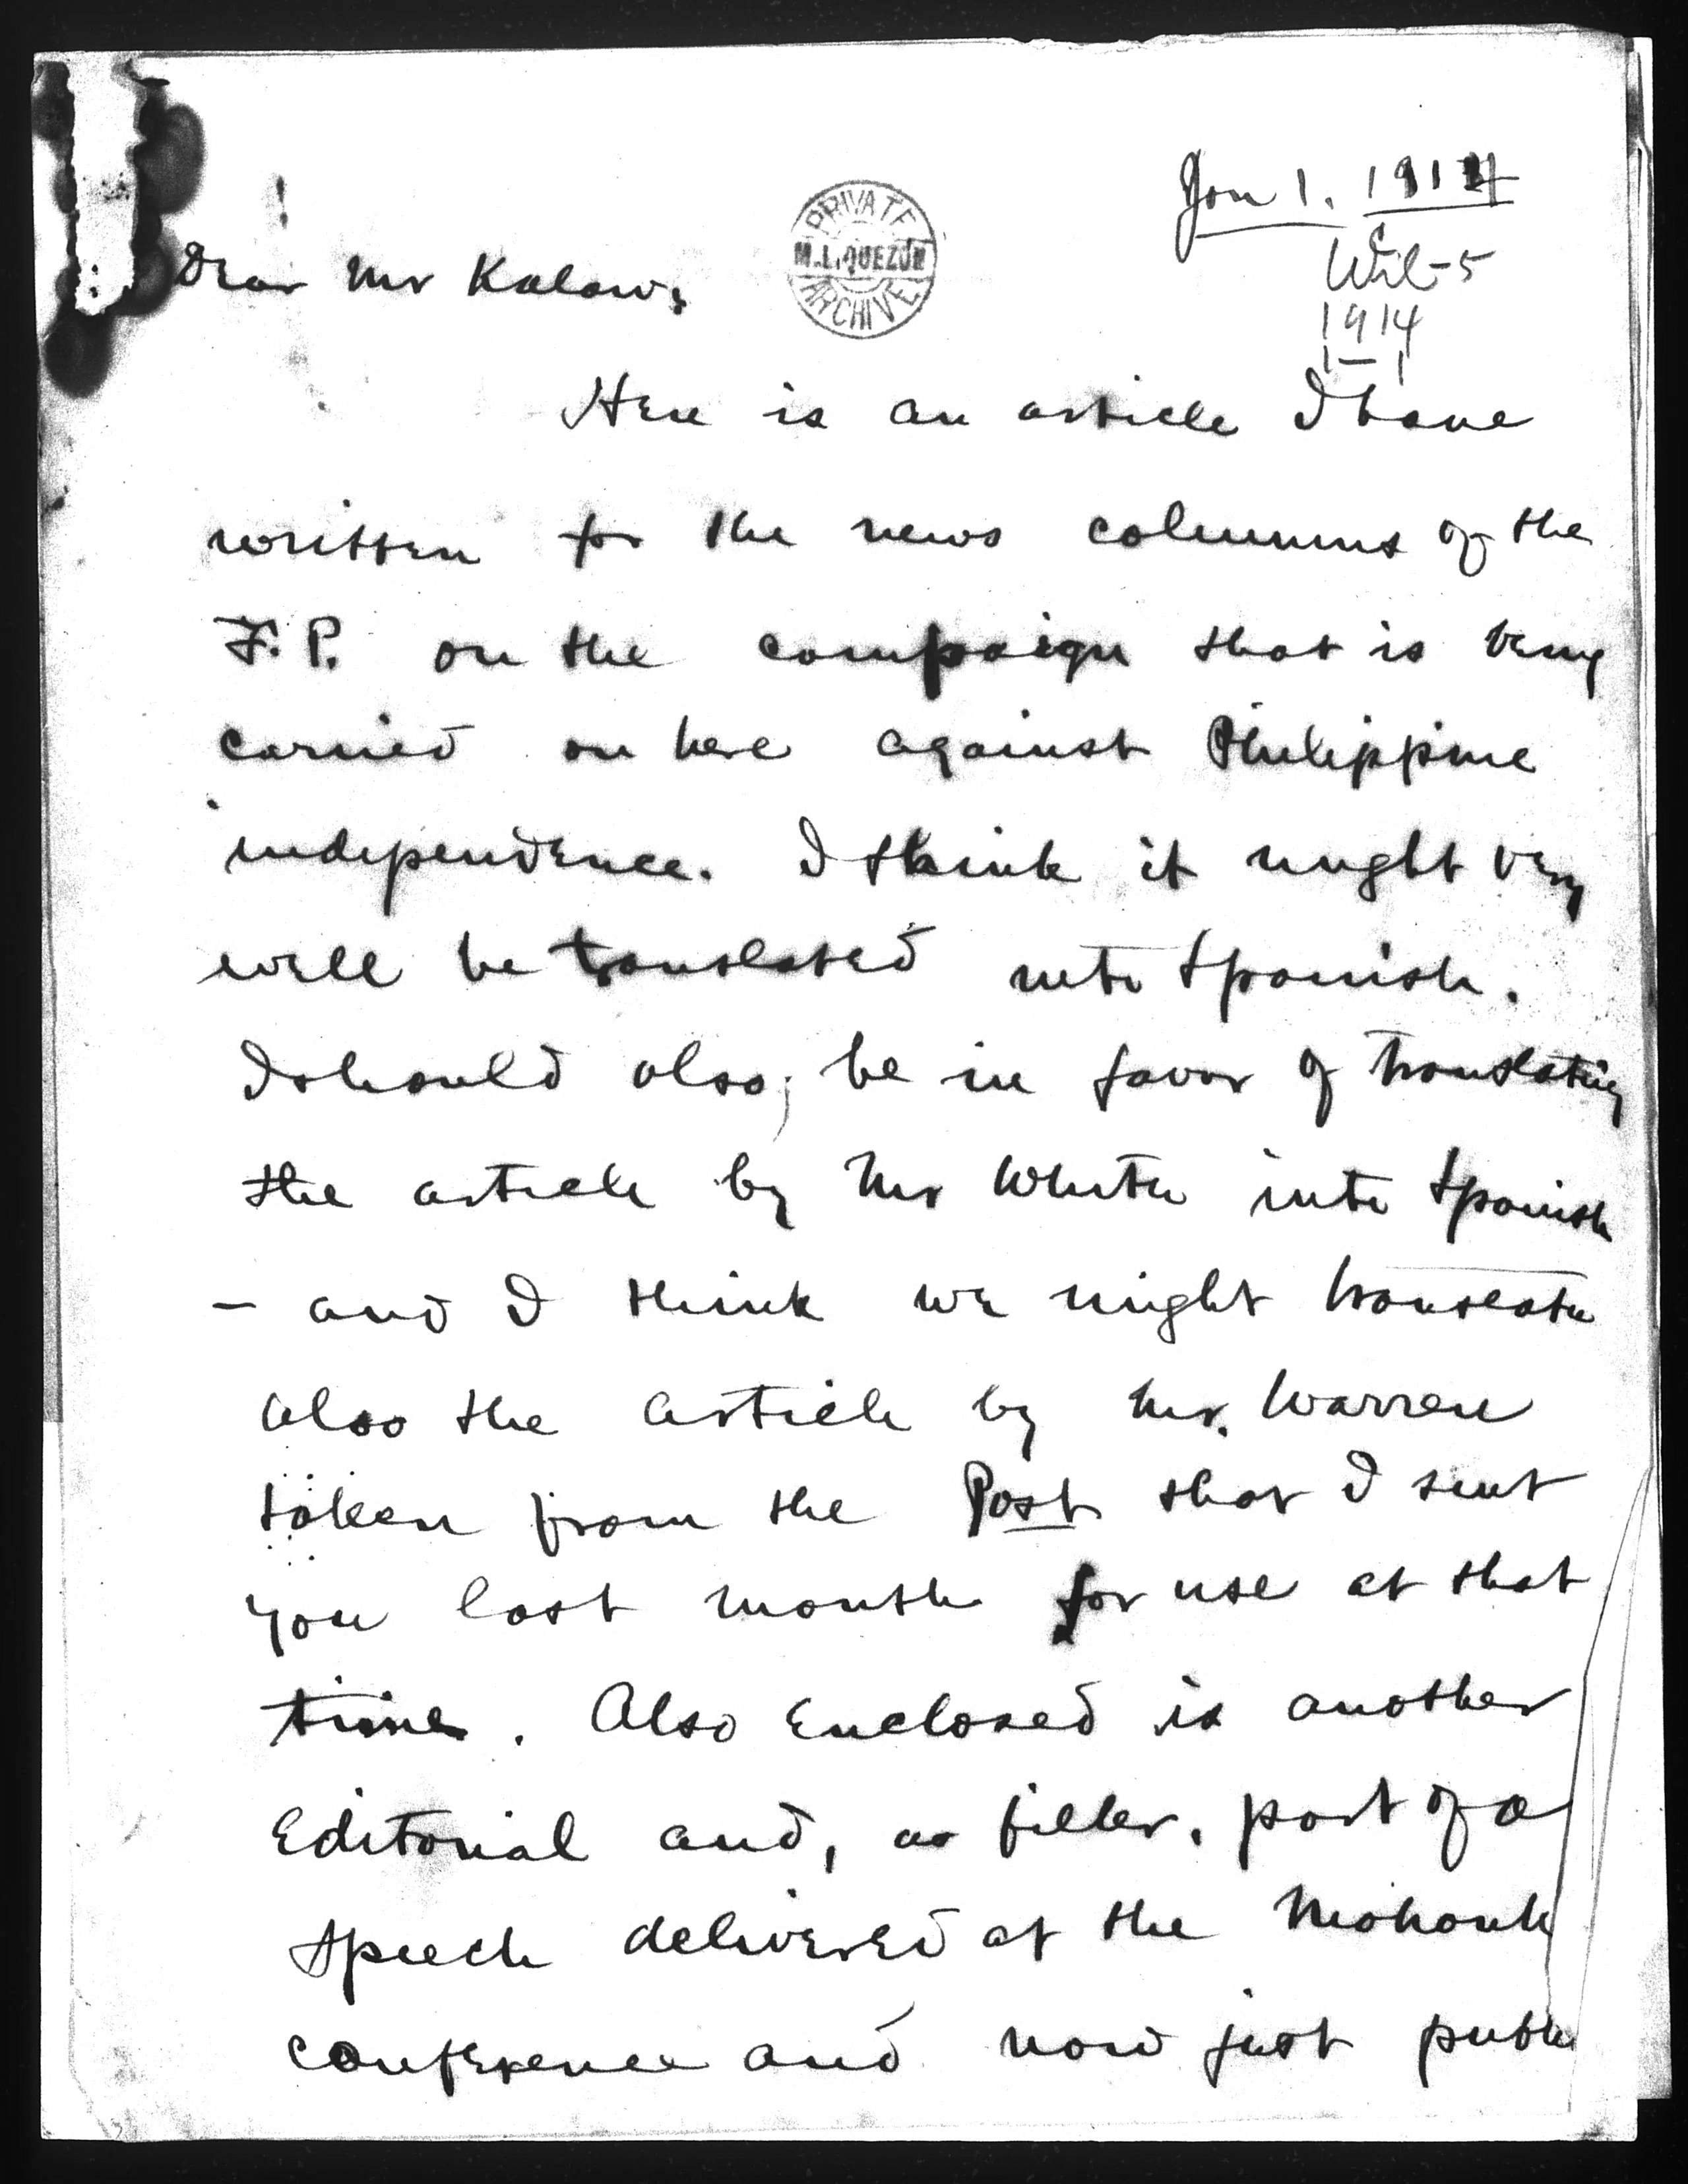 Jan 1. 1914
Wil-5
1914
1-1
PRIVATE
M.L. QUEZON
ARCHIVE
Dear Mr Kalaw:
Here is an article I have
written for the news columns of the
F.P. on the campaign that is being
carried on here against Philippine
independence. I think it might very
well be translated into Spanish.
I should also, be in favor of translating
the article by Mr White into Spanish
- and I think we might translate
also the article by Mr. Warren
taken from the Post that I sent
you last month for use at that
time. Also Enclosed is another
Editorial and, as filler, part of a
speech delivered at the Mohonk
conference and now just publi